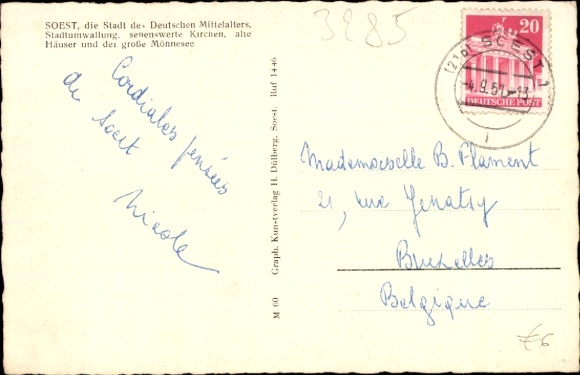 SOEST, die Stadt des Deutschen Mittelalters,
Stadtumwallung, sehenswerte Kirchen, alte
Häuser und der große Möhnesee
3285
20
(21b) SOEST 1
-4.9.51.-13
DEUTSCHE POST
Cordiales pensées
de Soest
Nicole
M 60 Graph. Kunstverlag H. Dülberg, Soest. Ruf 1446
Mademoiselle B. Flament
21, rue Jenatsy
Bruxelles
Belgique
€6